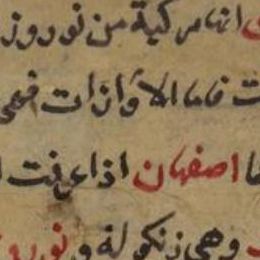 انها مركبة من نوروز
ت فاما الاوازات فهى
ما اصفهان اذا عرفت ا
وهى زنكوله و نورو